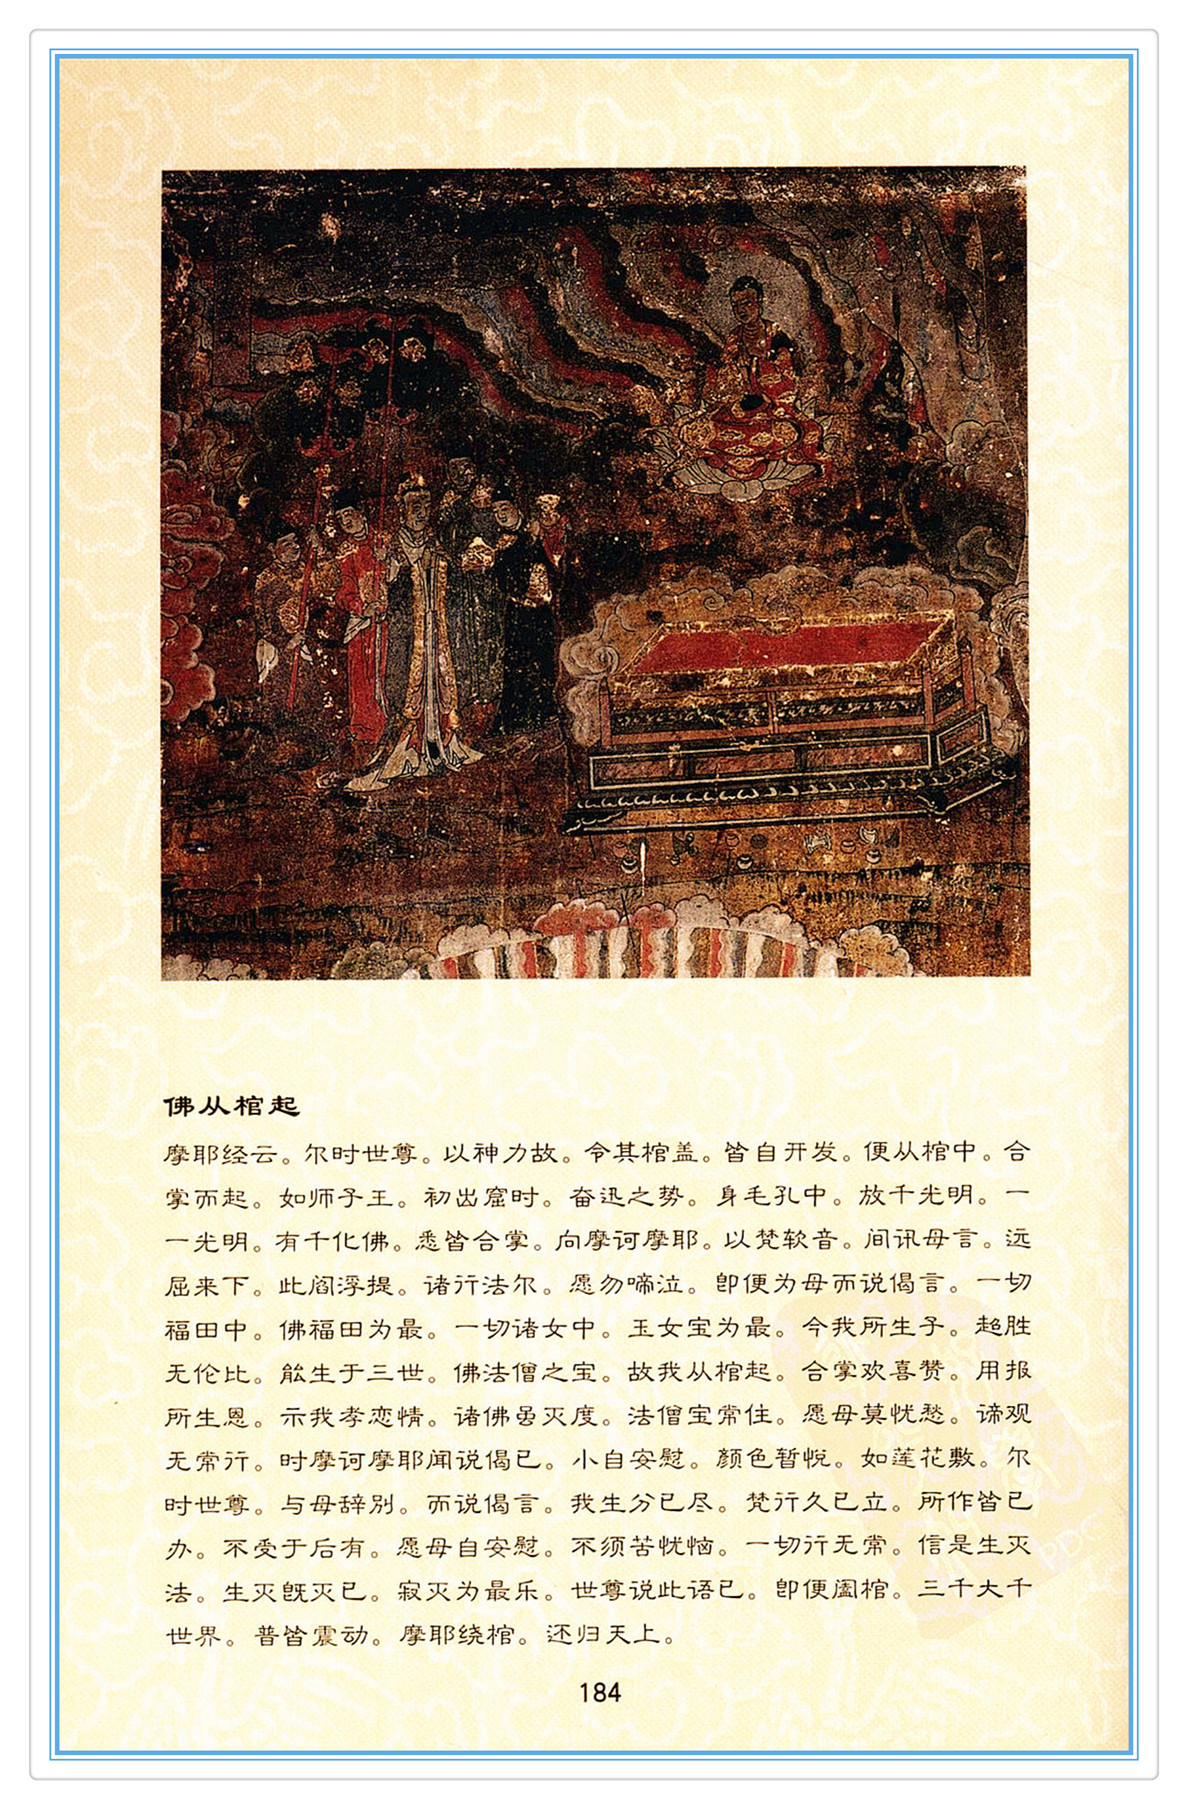 佛从棺起
摩耶经云。尔时世尊。以神力故。令其棺盖。皆自开发。便从棺中。合
掌而起。如师子王。初出窟时。奋迅之势。身毛孔中。放千光明。一
一光明。有千化佛。悉皆合掌。向摩诃摩耶。以梵软音。问讯母言。远
屈来下。此阎浮提。诸行法尔。愿勿啼泣。即便为母而说偈言。一切
福田中。佛福田为最。一切诸女中。玉女宝为最。今我所生子。超胜
无伦比。能生于三世。佛法僧之宝。故我从棺起。合掌欢喜赞。用报
所生恩。示我孝恋情。诸佛虽灭度。法僧宝常住。愿母莫忧愁。谛观
无常行。时摩诃摩耶闻说偈已。小自安慰。颜色暂悦。如莲花敷。尔
时世尊。与母辞别。而说偈言。我生分已尽。梵行久已立。所作皆已
办。不受于后有。愿母自安慰。不须苦忧恼。一切行无常。信是生灭
法。生灭既灭已。寂灭为最乐。世尊说此语已。即便阖棺。三千大千
世界。普皆震动。摩耶绕棺。还归天上。
184